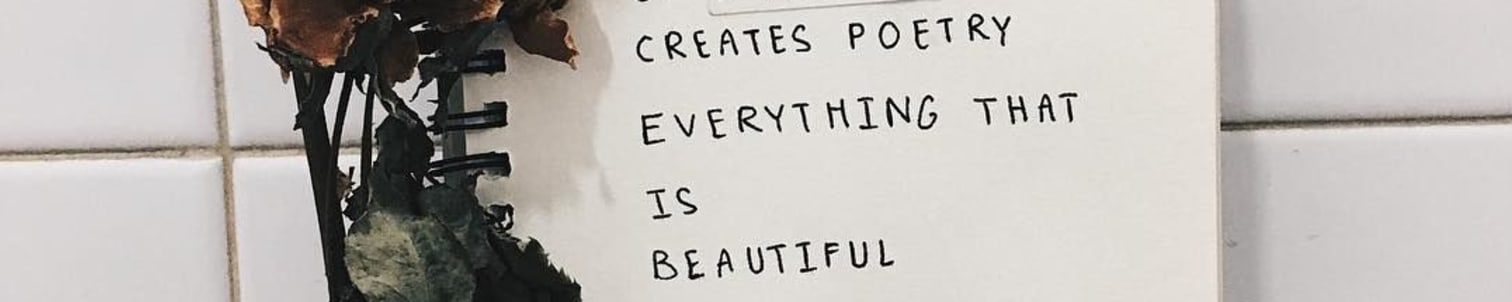 CREATES POETRY
EVERYTHING THAT
IS
BEAUTIFUL